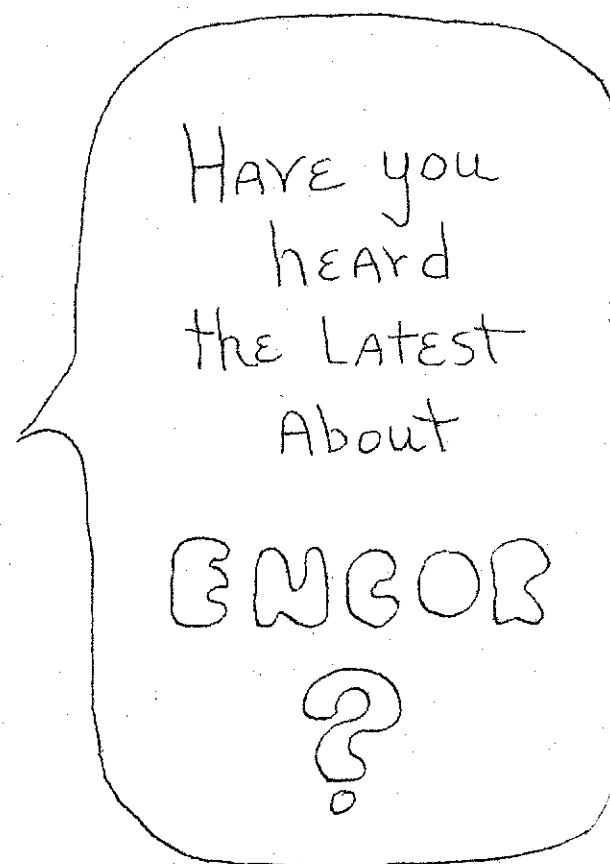 HAVE you
hEArd
thE LAtESt
About
ENCOR
?